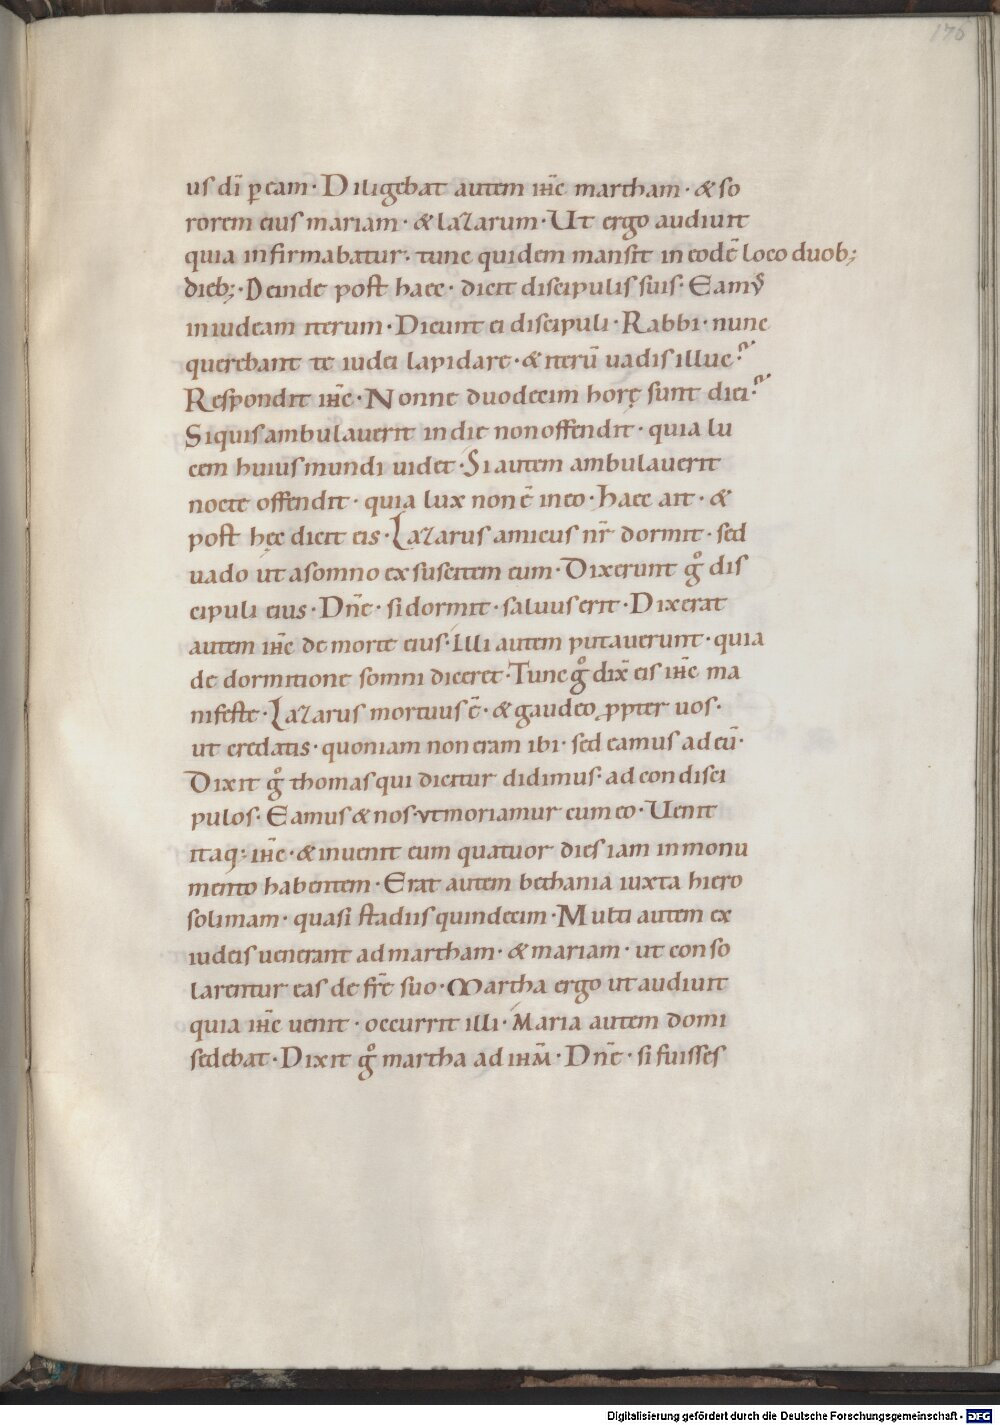 176
us dī ꝑ eam · Diligebat autem ih̄c martham · & so
rorem eius mariam · & lazarum · Ut ergo audiuit
quia infirmabatur · tunc quidem mansit in eodē loco duob;
dieb; · Deinde post haec · dicit discipulis suis · Eamꝰ
in iudeam iterum · Dicunt ei discipuli · Rabbi · nunc
querebant te iudei lapidare · & iterū uadis illuc?
Respondit ih̄c · Nonne duodecim horę sunt diei?
Siquis ambulauerit in die non offendit · quia lu
cem huius mundi uidet · Si autem ambulauerit
nocte offendit · quia lux non ē in eo · Haec ait · &
post hęc dicit eis · Lazarus amicus nr̄ dormit · sed
uado ut a somno exsuscitem eum · Dixerunt gͦ dis
cipuli eius · Dn̄e · si dormit · saluus erit · Dixerat
autem ih̄c de morte eius · Illi autem putauerunt · quia
de dormitione somni diceret · Tunc gͦ dix̄ eis ih̄c ma
nifeste · Lazarus mortuus ē · & gaudeo ꝓpter uos ·
ut credatis · quoniam non eram ibi · sed eamus ad eū ·
Dixit gͦ thomas qui dicitur didimus · ad condisci
pulos · Eamus & nos · vt moriamur cum eo · Uenit
itaq; ih̄c · & inuenit eum quatuor dies iam in monu
mento habentem · Erat autem bethania iuxta hiero
solimam · quasi stadiis quindecim · Multi autem ex
iudeis uenerant ad martham · & mariam · ut conso
larentur eas de fr̄e suo · Martha ergo ut audiuit
quia ih̄c uenit · occurrit illi · Maria autem domi
sedebat · Dixit gͦ martha ad ih̄m · Dn̄e · si fuisses
Digitalisierung gefördert durch die Deutsche Forschungsgemeinschaft - DFG